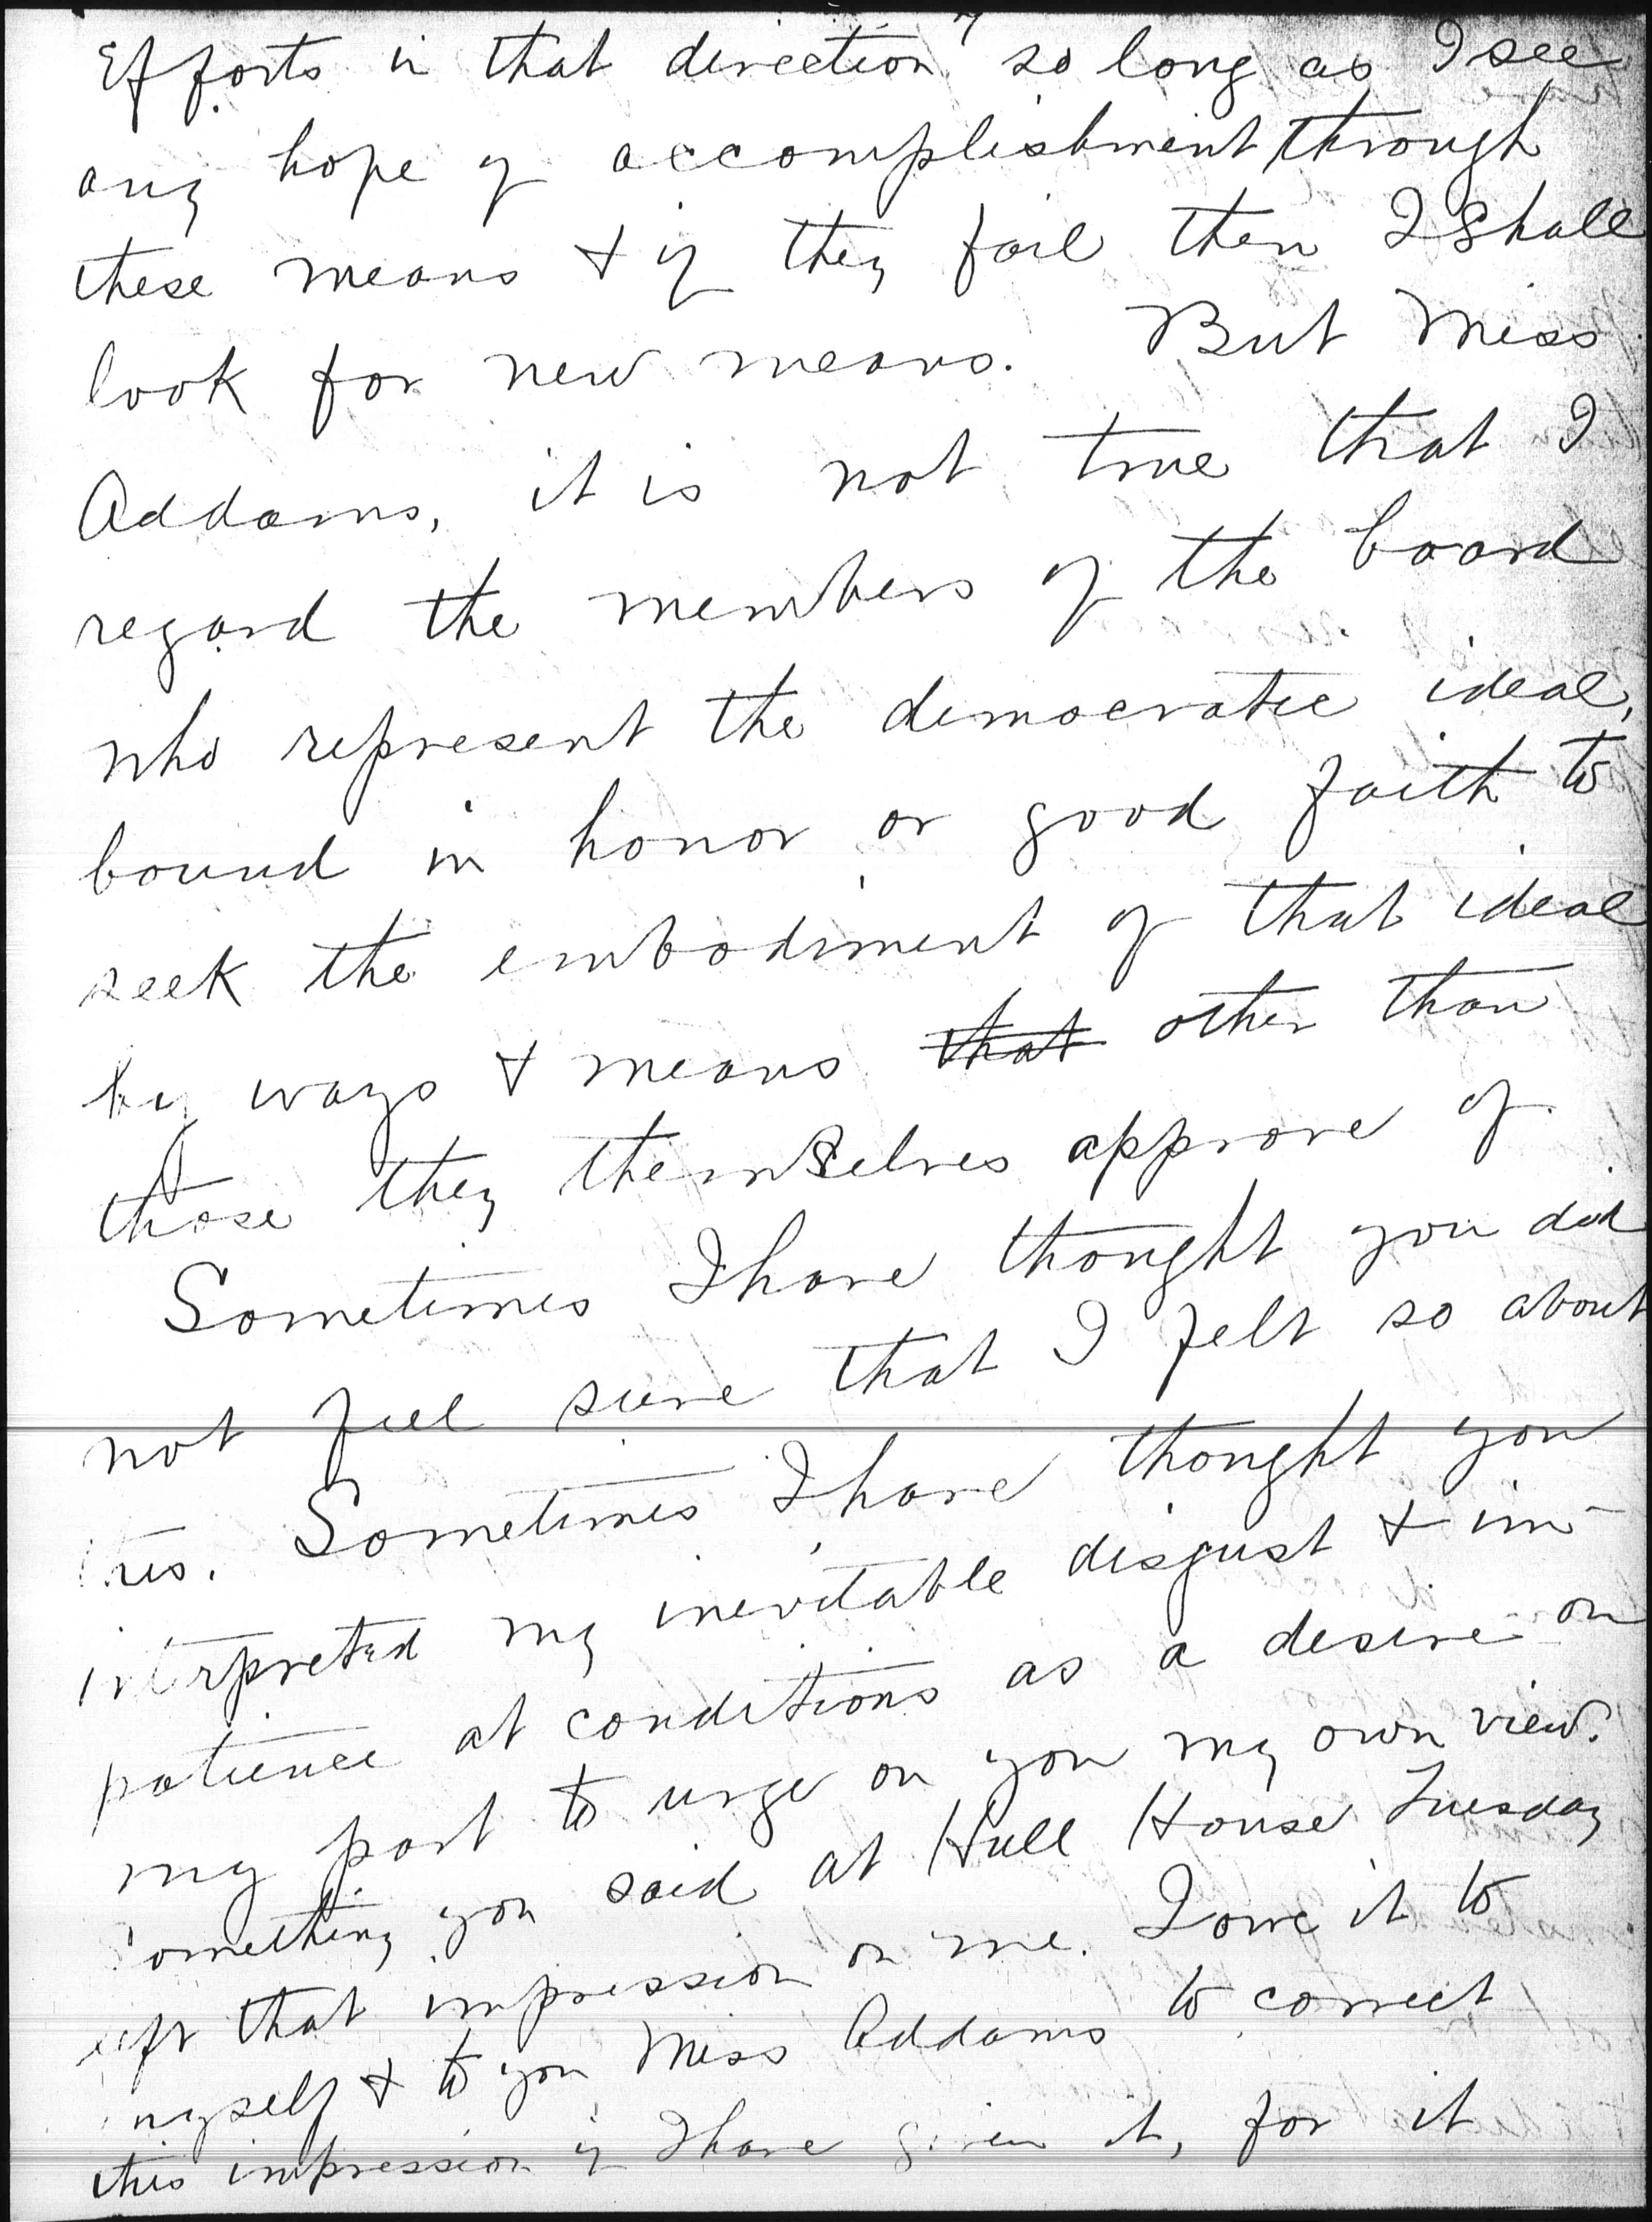 Efforts in that direction, so long as I see
any hope of accomplishment through
these means & if they fail then I shall
look for new means. But Miss
Addams, it is not true that I
regard the members of the board
who represent the democratic ideal,
bound in honor or good faith to
seek the embodiment of that ideal
by ways & means that other than
those they themselves approve of.
Sometimes I have thought you did
not feel sure that I felt so about
this. Sometimes I have thought you
interpreted my inevitable disgust & im-
patience at conditions as a desire on
my part to urge on you my own view.
Something you said at Hull House Tuesday
left that impression on me. I owe it to
myself & to you Miss Addams to correct
this impression if I have given it, for it